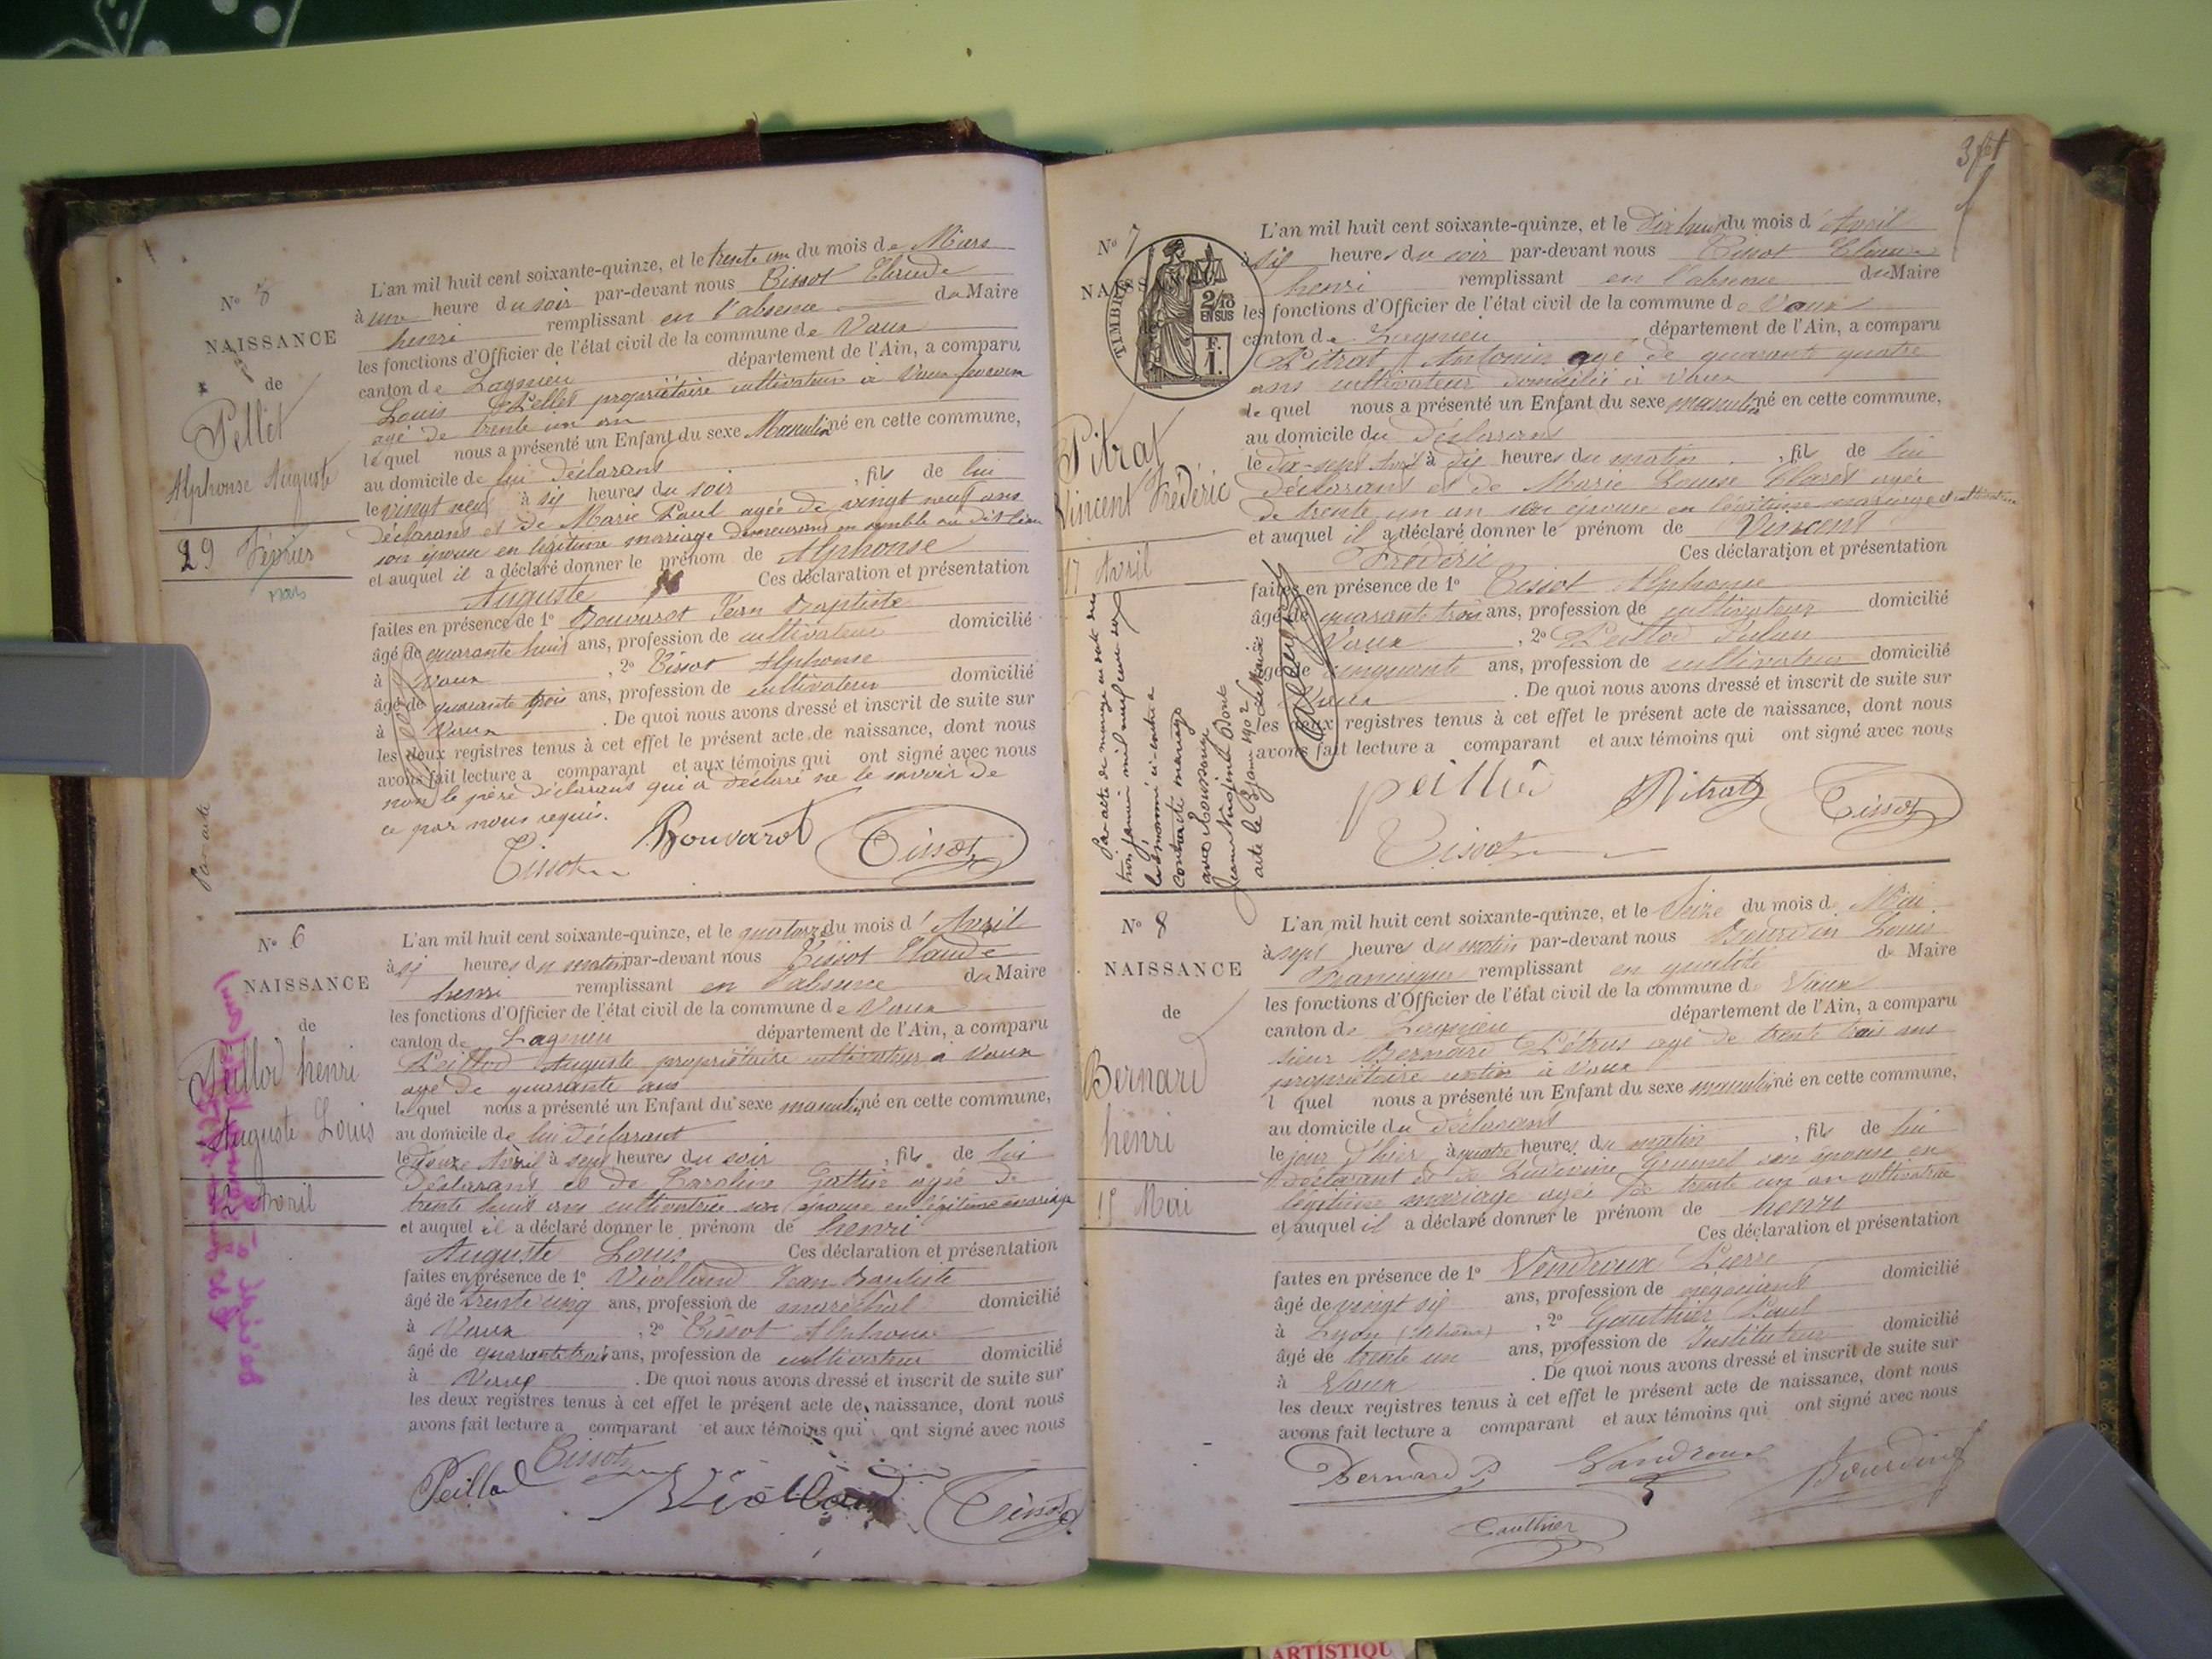 N° 5
NAISSANCE
de
Pellet
Alphonse Auguste
29 Février
mars
L'an mil huit cent soixante-quinze, et le trente un du mois de Mars
à une heure du soir par-devant nous Tissot Claude
henri remplissant en l'absence du Maire
les fonctions d'Officier de l'état civil de la commune de Vaux
canton de Lagnieu département de l'Ain, a comparu
Louis Pellet propriétaire cultivateur à Vaux
agé de trente un an
lequel nous a présenté un Enfant du sexe Masculin né en cette commune,
au domicile de lui déclarant
le vingt neuf à six heures du soir, fils de lui
déclarant et de Marie Paul agée de vingt neuf ans
son épouse en légitime mariage demeurant en semble au dit lieu
et auquel il a déclaré donner le prénom de Alphonse
Auguste Ces déclaration et présentation
faites en présence de 1° Bouvarot Jean Baptiste
âgé de quarante huit ans, profession de cultivateur domicilié
à Vaux, 2° Tissot Alphonse
âgé de quarante trois ans, profession de cultivateur domicilié
à Vaux. De quoi nous avons dressé et inscrit de suite sur
les deux registres tenus à cet effet le présent acte de naissance, dont nous
avons fait lecture a comparant et aux témoins qui ont signé avec nous
non le père déclarant qui a déclaré ne le savoir de
ce par nous requis.
Tissot Bouvarot Tissot
Par acte
N° 6
NAISSANCE
de
Peillod henri
Auguste Louis
12 Avril
L'an mil huit cent soixante-quinze, et le quatorze du mois d'Avril
à six heures du matin par-devant nous Tissot Claude
henri remplissant en l'absence du Maire
les fonctions d'Officier de l'état civil de la commune de Vaux
canton de Lagnieu département de l'Ain, a comparu
Peillod Auguste propriétaire cultivateur à Vaux
agé de quarante ans
lequel nous a présenté un Enfant du sexe masculin né en cette commune,
au domicile de lui déclarant
le douze Avril à sept heures du soir, fils de lui
déclarant et de Caroline Gottin agée de
trente huit ans cultivatrice son épouse en légitime mariage
et auquel il a déclaré donner le prénom de henri
Auguste Louis Ces déclaration et présentation
faites en présence de 1° Violland Jean Baptiste
âgé de trente cinq ans, profession de maréchal domicilié
à Vaux, 2° Tissot Alphonse
âgé de quarante trois ans, profession de cultivateur domicilié
à Vaux. De quoi nous avons dressé et inscrit de suite sur
les deux registres tenus à cet effet le présent acte de naissance, dont nous
avons fait lecture a comparant et aux témoins qui ont signé avec nous
Peillod Tissot Violland Tissot
N° 7
NAISSANCE
TIMBRE
2/10
EN SUS
F.
1.
Pitrat
Vincent Frédéric
17 Avril
L'an mil huit cent soixante-quinze, et le dix huit du mois d'Avril
à six heures du soir par-devant nous Tissot Claude
henri remplissant en l'absence du Maire
les fonctions d'Officier de l'état civil de la commune de Vaux
canton de Lagnieu département de l'Ain, a comparu
Pitrat Antonin agé de quarante quatre
ans cultivateur domicilié à Vaux
lequel nous a présenté un Enfant du sexe masculin né en cette commune,
au domicile du déclarant
le dix-sept Avril à dix heures du matin, fils de lui
déclarant et de Marie Louise Claret agée
de trente un an son épouse en légitime mariage et cultivatrice
et auquel il a déclaré donner le prénom de Vincent
Frédéric Ces déclaration et présentation
faites en présence de 1° Tissot Alphonse
âgé de quarante trois ans, profession de cultivateur domicilié
Vaux, 2° Peillod
âgé de cinquante ans, profession de cultivateur domicilié
Vaux. De quoi nous avons dressé et inscrit de suite sur
les deux registres tenus à cet effet le présent acte de naissance, dont nous
avons fait lecture a comparant et aux témoins qui ont signé avec nous
peillod Pitrat Tissot
Tissot
Par acte de mariage en date du
trois janvier mil neuf cent deux
le dénommé ci-contre a
contracté mariage
avec
Jeanne
acte le 3 janvier 1902
N° 8
NAISSANCE
de
Bernard
henri
15 Mai
L'an mil huit cent soixante-quinze, et le Seize du mois de Mai
à sept heures du matin par-devant nous Bourdin Louis
Francisque remplissant en qualité de Maire
les fonctions d'Officier de l'état civil de la commune de Vaux
canton de Lagnieu département de l'Ain, a comparu
sieur Bernard Pétrus agé de trente trois ans
propriétaire rentier à Vaux
l quel nous a présenté un Enfant du sexe masculin né en cette commune,
au domicile du déclarant
le jour d'hier à quatre heures du matin, fils de lui
déclarant et de Ludivine Grumel son épouse en
légitime mariage agée de trente un an cultivatrice
et auquel il a déclaré donner le prénom de henri
Ces déclaration et présentation
faites en présence de 1° Vendroux Pierre
âgé de vingt six ans, profession de négociant domicilié
à Lyon (Rhône), 2° Gauthier Paul
âgé de trente un ans, profession de Instituteur domicilié
à Vaux. De quoi nous avons dressé et inscrit de suite sur
les deux registres tenus à cet effet le présent acte de naissance, dont nous
avons fait lecture a comparant et aux témoins qui ont signé avec nous
Bernard P Vandroux Bourdin
Gauthier
ARTISTIQU